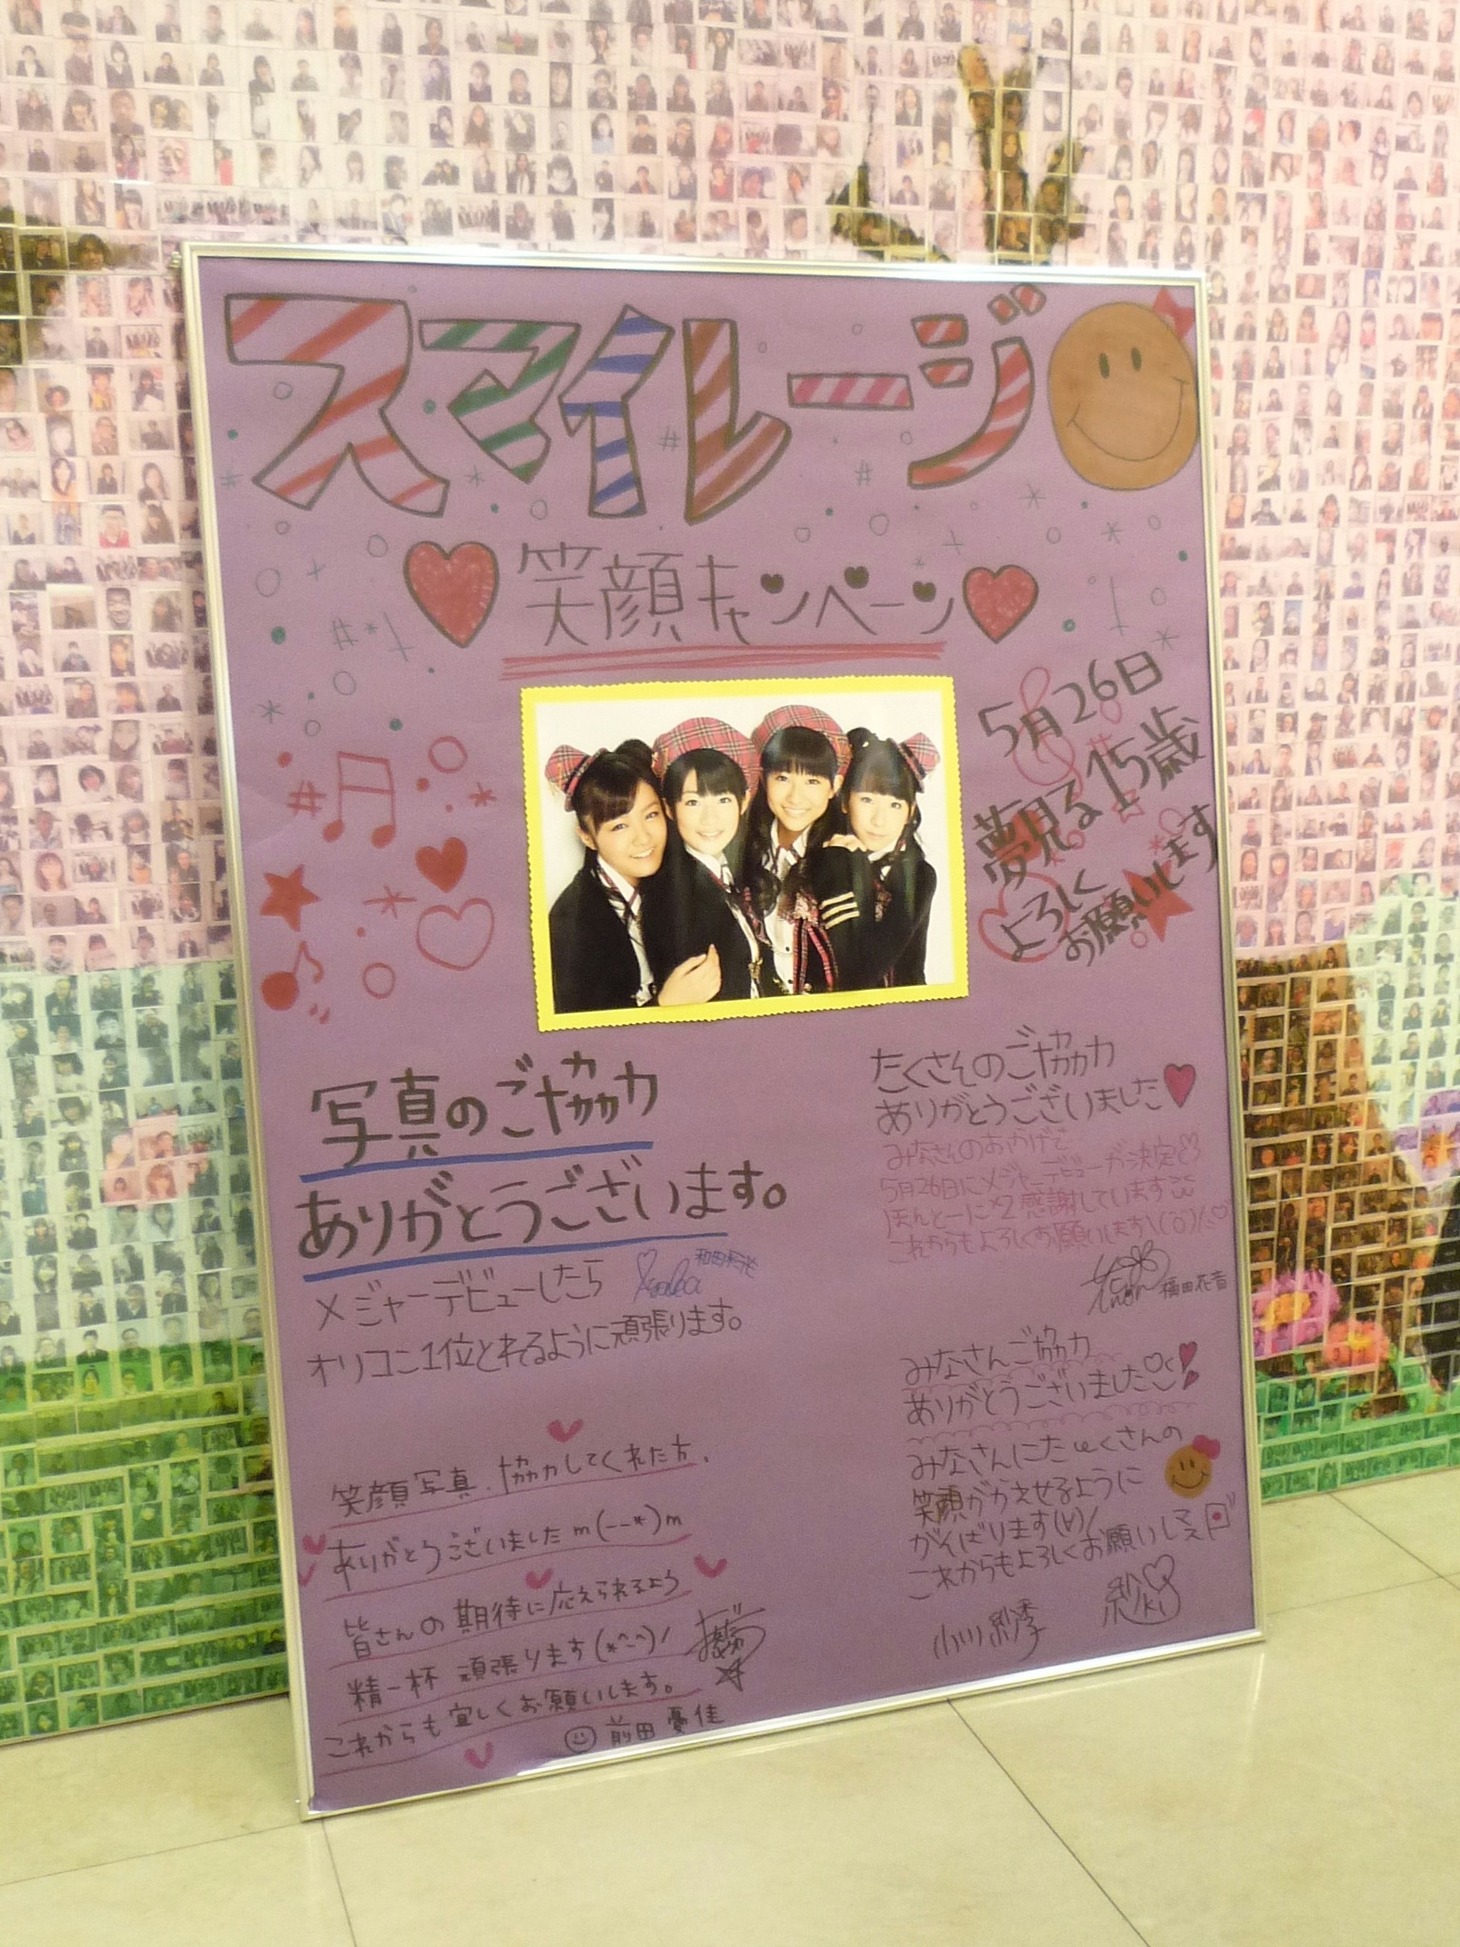 スマイレージ
笑顔キャンペーン
5月26日
夢見る15歳
よろしく
お願いします
写真のご協力
ありがとうございます。
メジャーデビューしたら
和田彩花
オリコン1位とれるように頑張ります。
たくさんのご協力
ありがとうございました
みなさんのおかげで
5月26日にメジャーデビューが決定
ほんとーに×2感謝しています
これからもよろしくお願いします\(^o^)/
福田花音
みなさんご協力
ありがとうございました
みなさんにたくさんの
笑顔がかえせるように
がんばります(∀)/
これからもよろしくお願いします
小川紗季
紗ki
笑顔写真、協力してくれた方、
ありがとうございましたm(--*)m
皆さんの期待に応えられるよう
精一杯 頑張ります(*^-^)/
これからも宜しくお願いします。
前田 憂佳